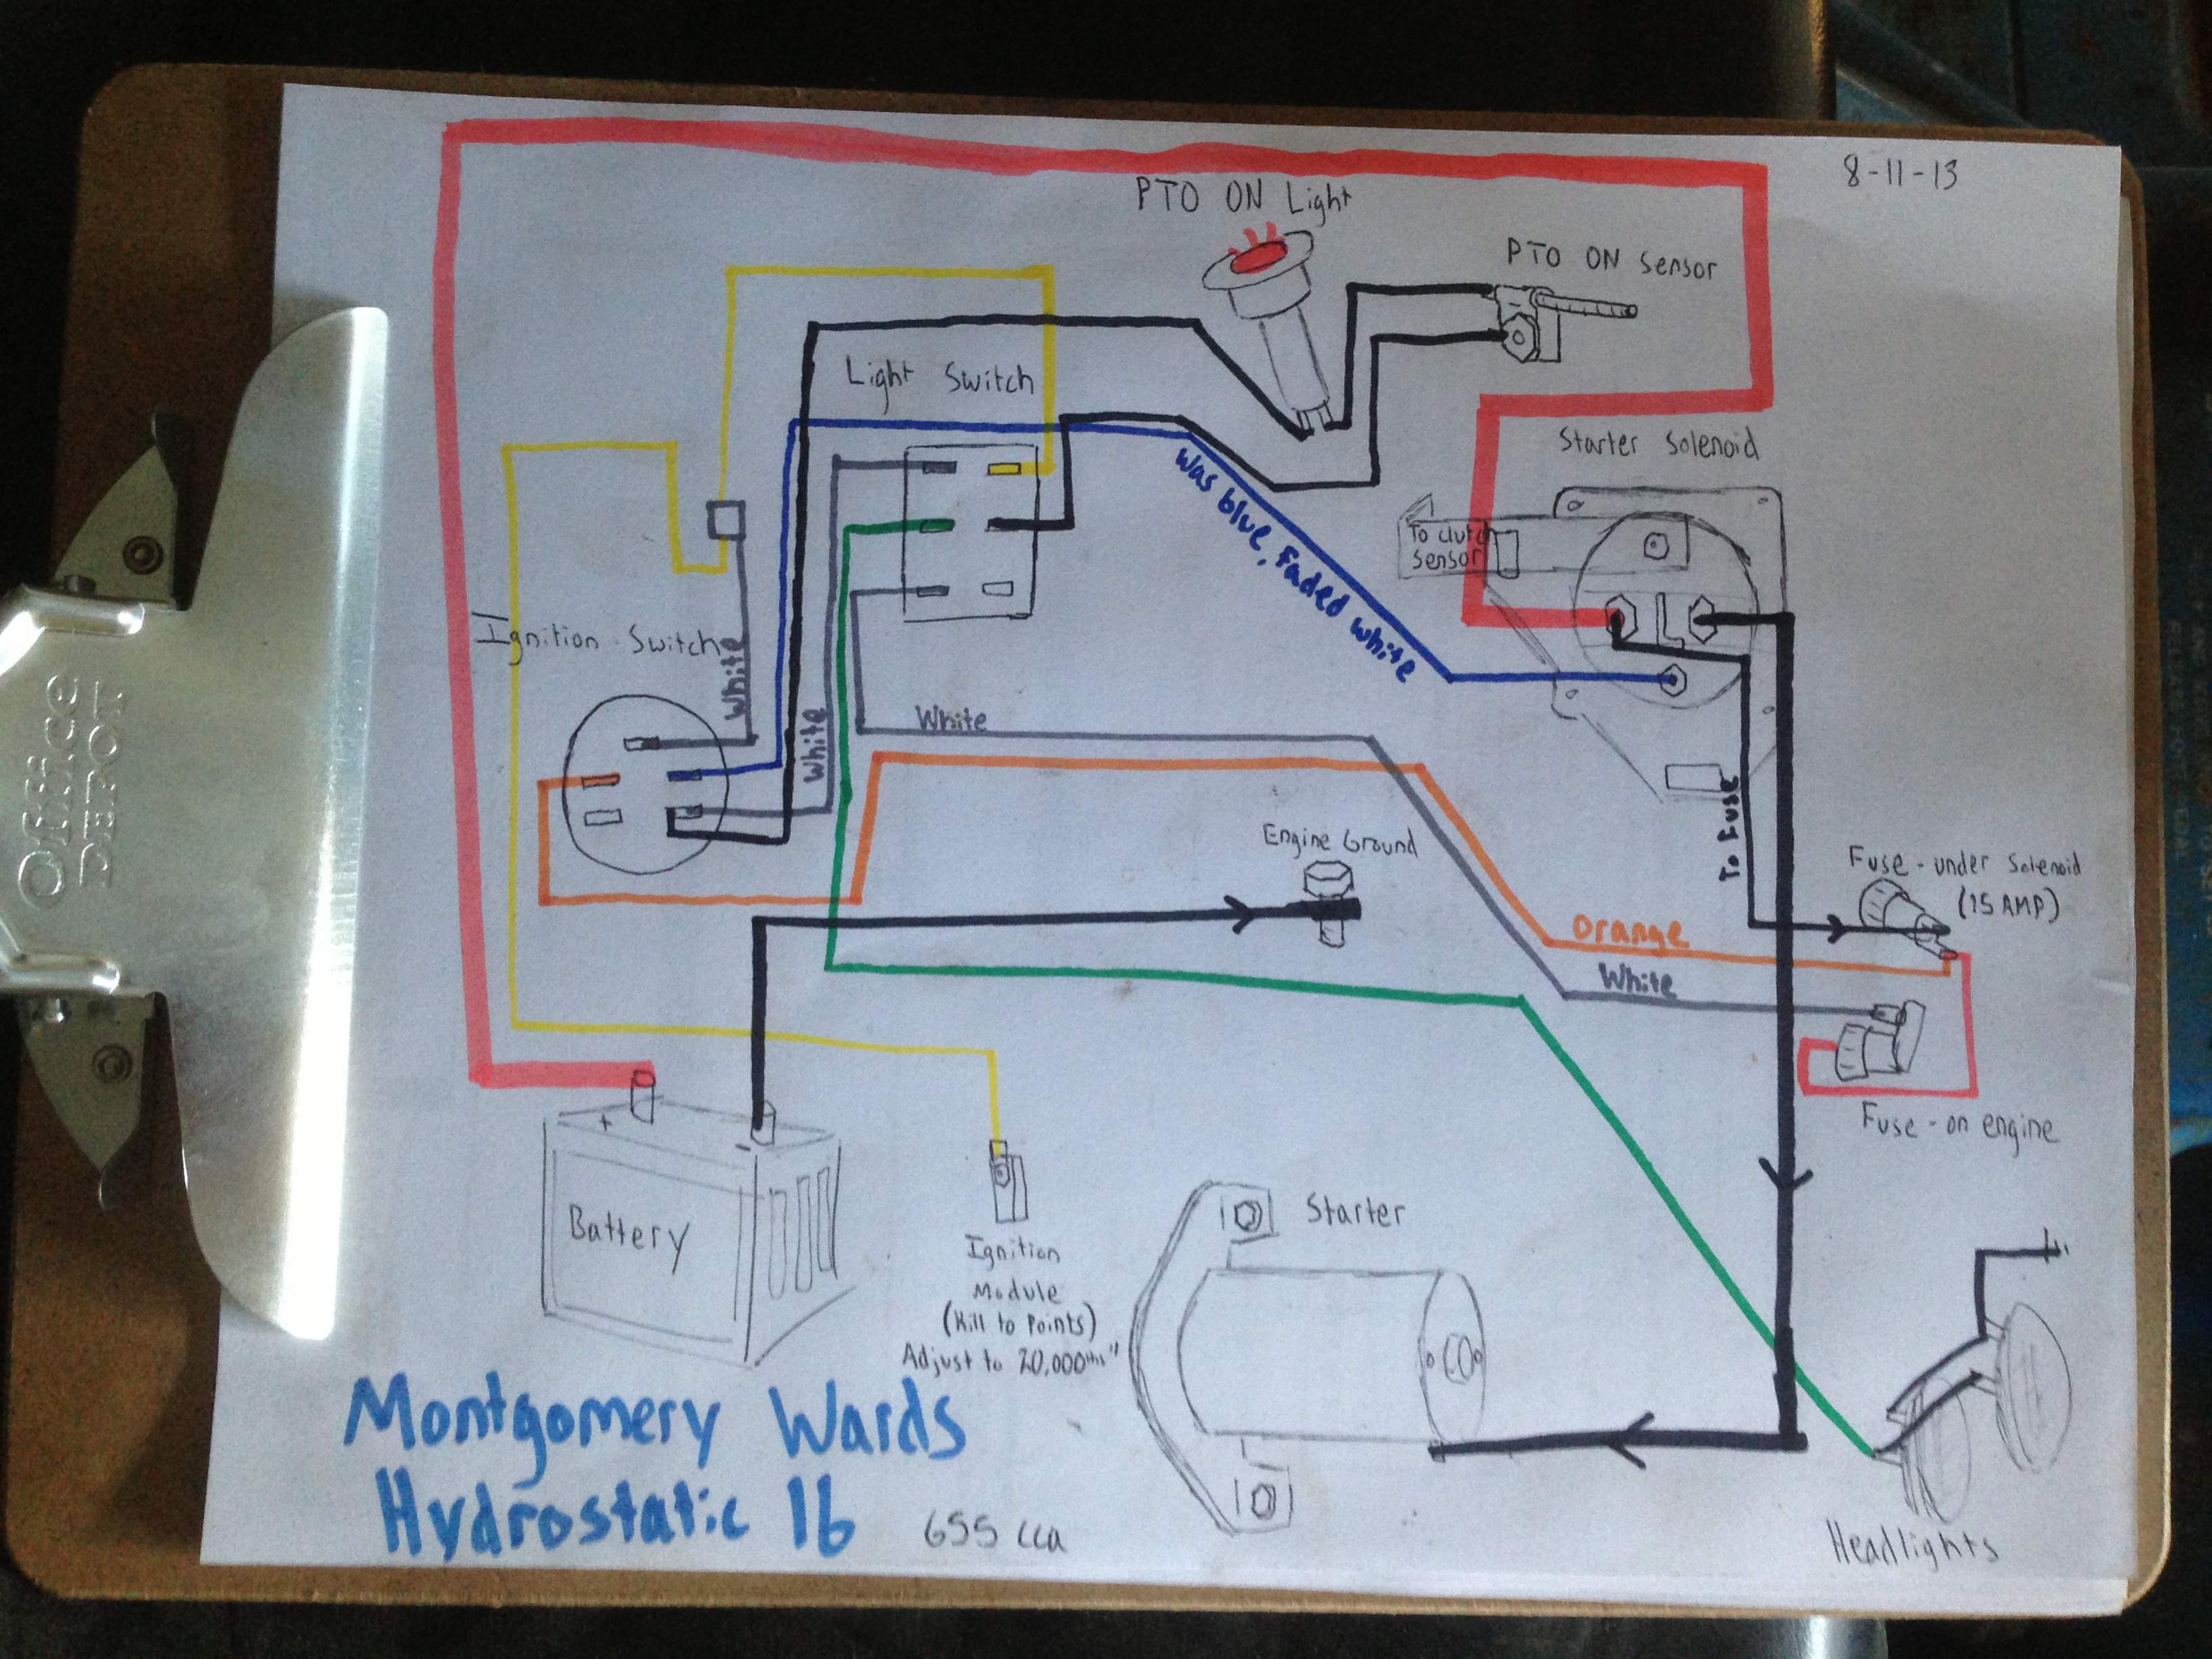 8-11-13
PTO ON Light
PTO ON Sensor
Light Switch
Starter Solenoid
To clutch
sensor
was blue, Faded white
Ignition Switch
White
White
White
To Fuse
Engine Ground
Fuse - under Solenoid
(15 AMP)
Orange
White
Fuse - on engine
+
-
Battery
Ignition
Module
(Kill to Points)
Adjust to 20,000ths"
Starter
Headlights
Montgomery Wards
Hydrostatic 16
655 cca
Office
DEPOT